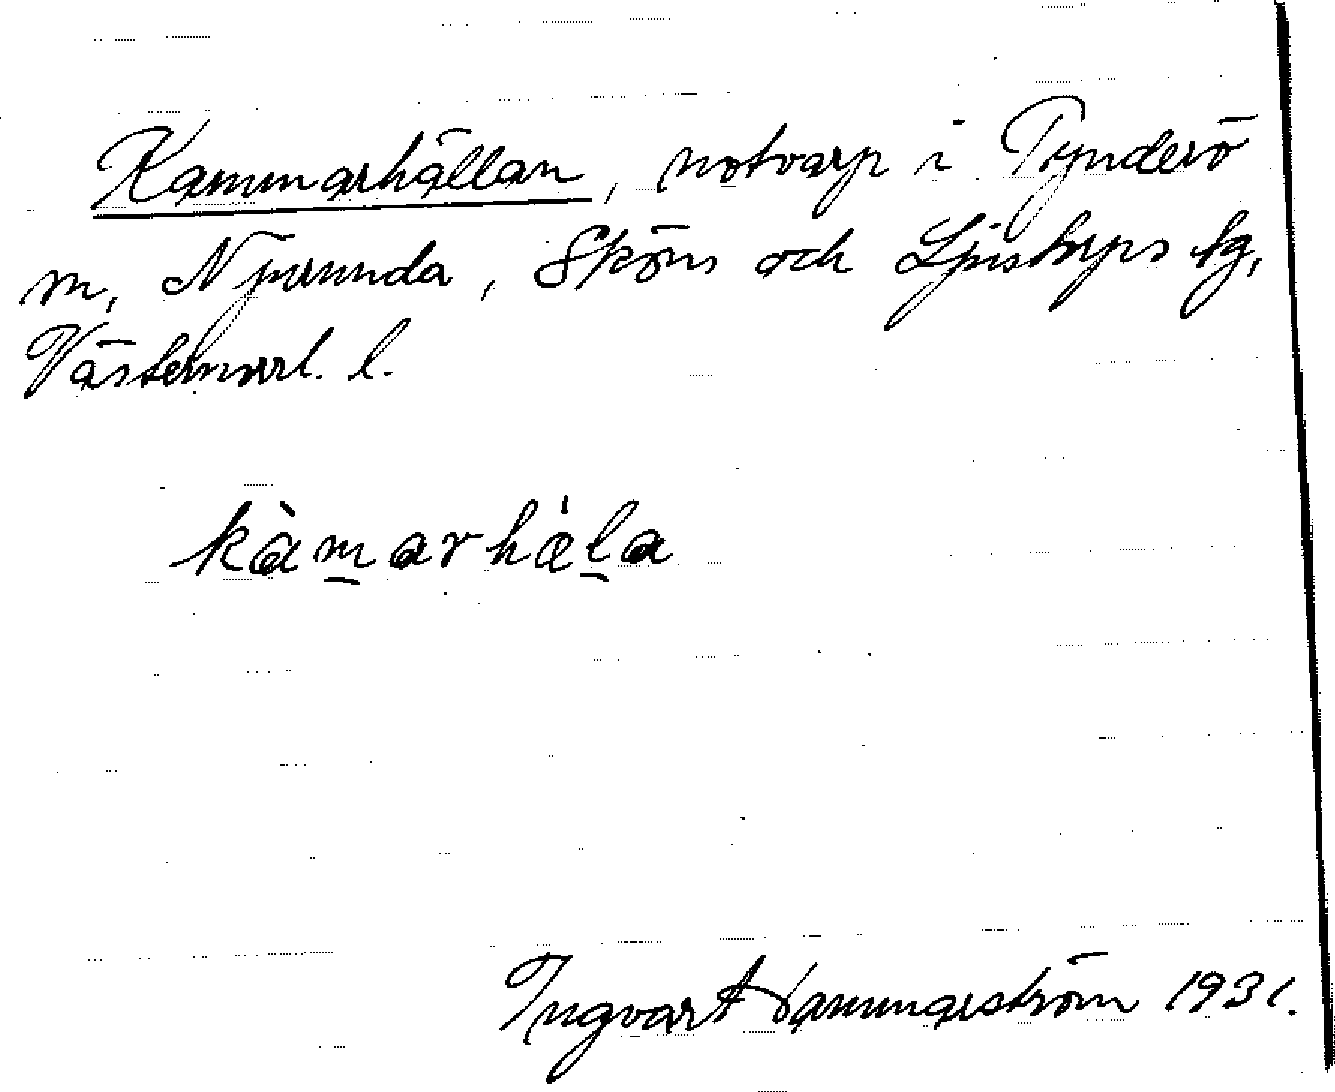 Kammarhällan, notvarp i Tynderö
m, Njurunda, Sköns och Ljustorps tg,
Västernorrl. l.
kàmarhæ̍la
Ingvart 1931.